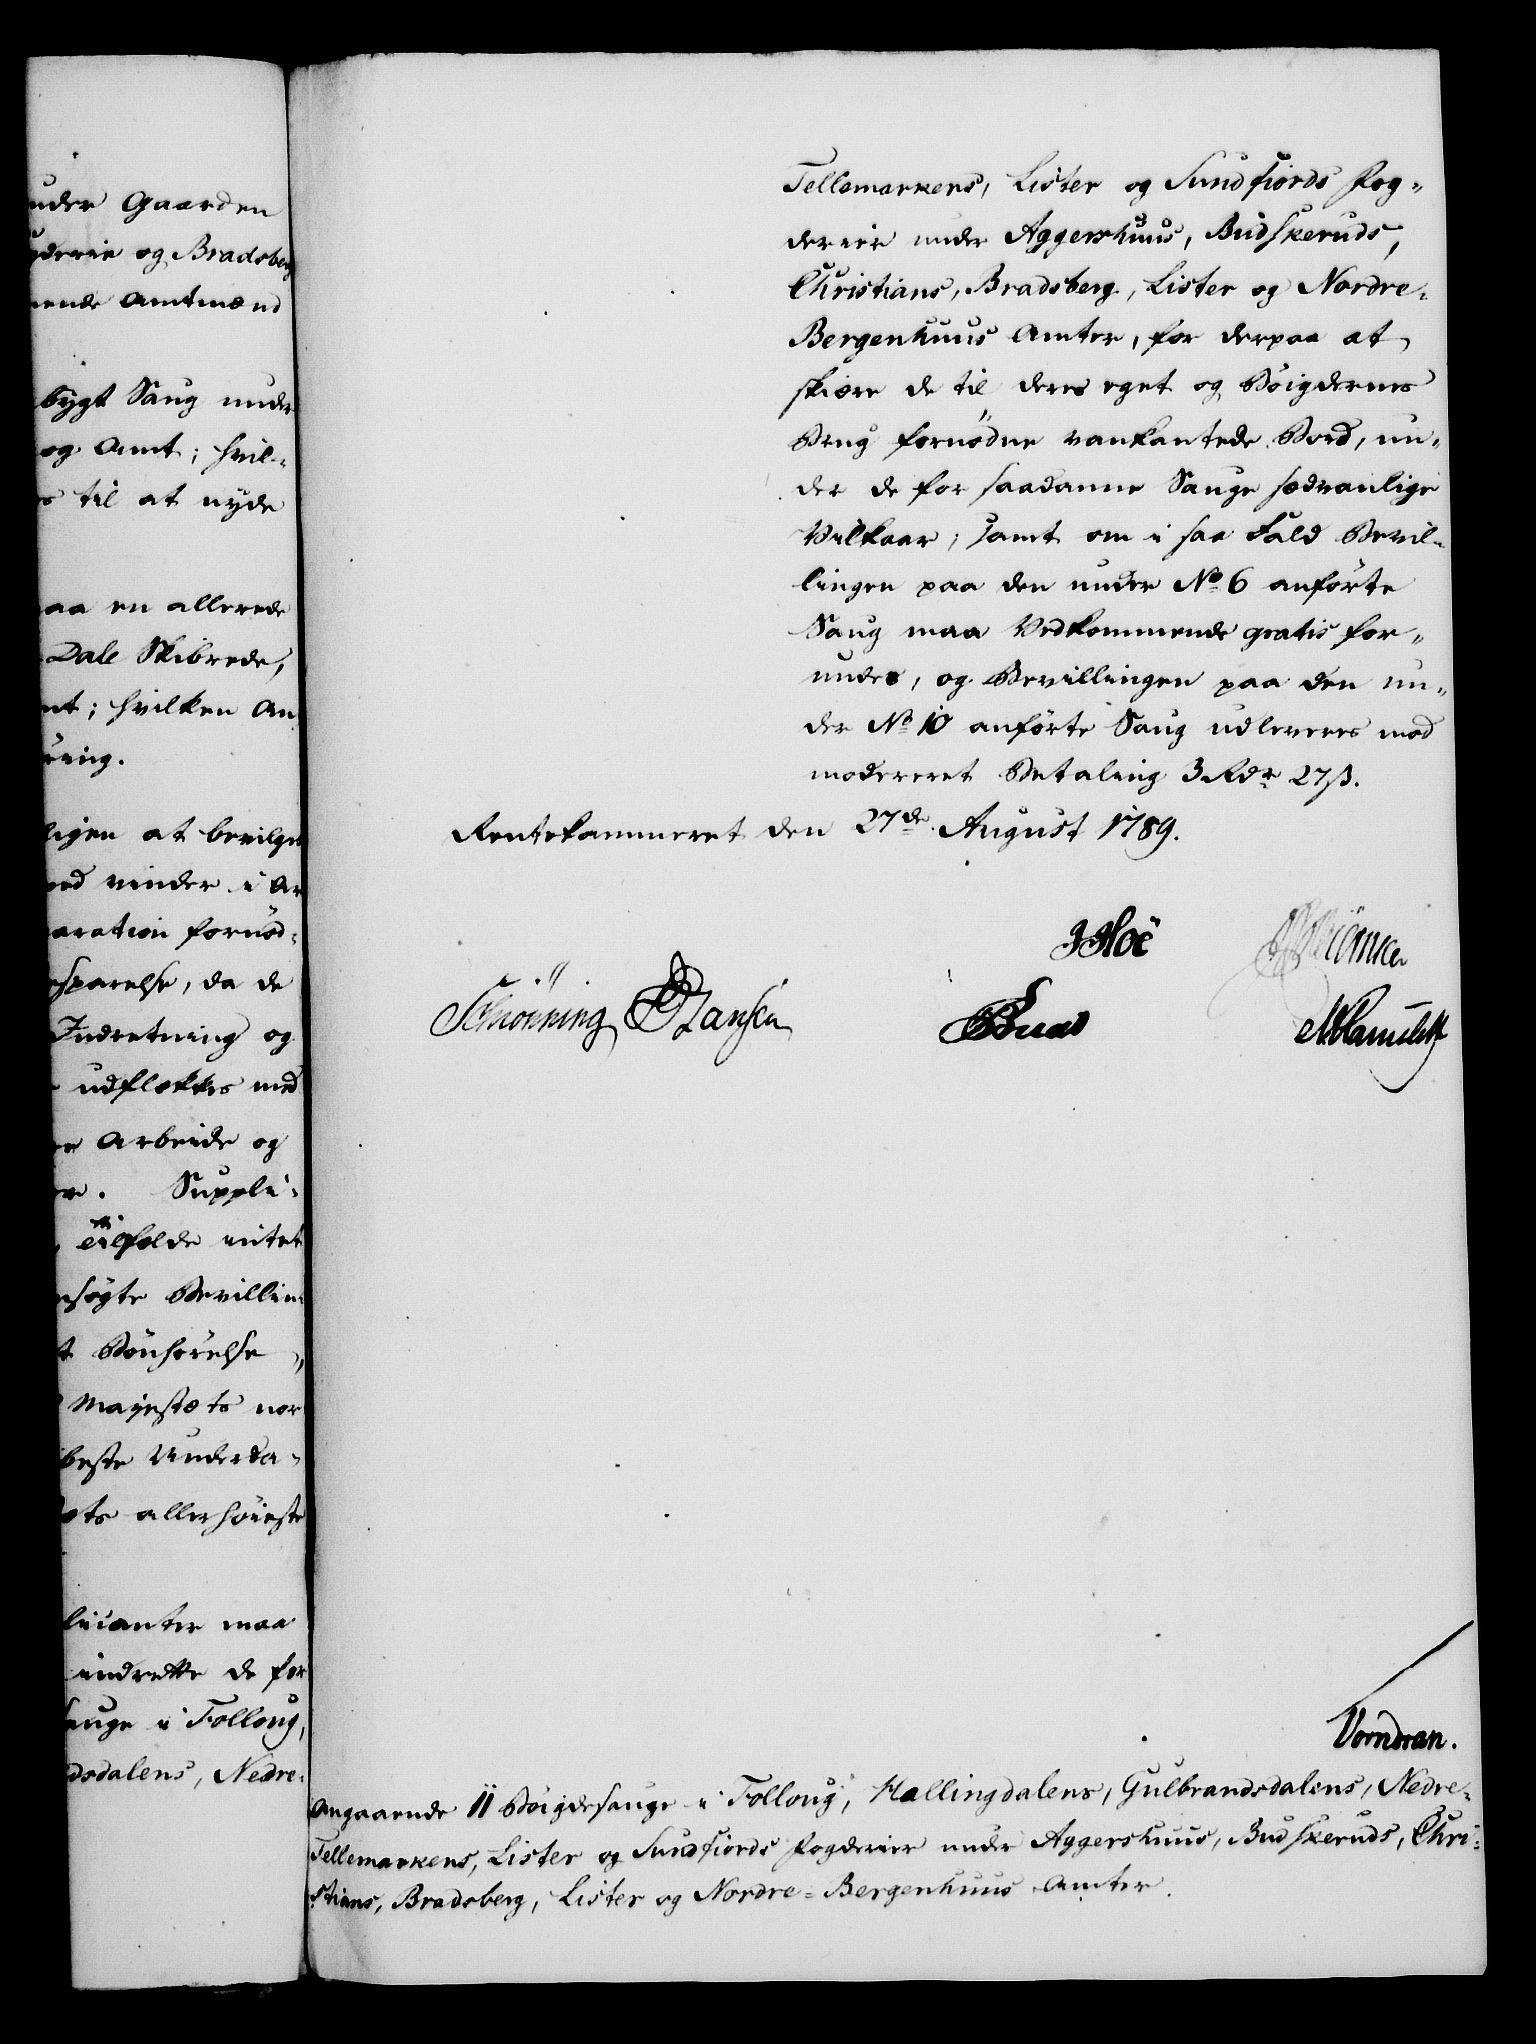 under Gaarden
gderie og Bradsberg
mende Amtmænd
bygt Saug under
og Amt; hvil-
s til at nyde
aa en allerede
Dale Skibrede,
nt; hvilken An
ring.
ligen at bevilges
ved vinder i Ar
paration fornød-
sparelse, da de
Indretning og
udflækkes med
Arbeide og
Suppli-
tilfelde intet
nsøgte Bevillin-
t Bønhørelse,
Majestæts nor
beste Undersa-
ts allerhøieste
licanter maa
indrette de for
Sauge i Follong,
dsdalens, Nedre-
Tellemarkens, Lister og Sundfiords Fog-
derier under Aggershuus, Budskeruds,
Christians, Bradsberg, Lister og Nordre-
Bergenhuus Amter, for derpaa at
skiære de til deres eget og Bøigdernes
Brug fornødne vankantede Bord, un-
der de for saadanne Sauge sædvanlige
Vilkaar; samt om i saa Fald Bevil-
lingen paa den under No 6 anførte
Saug maa Vedkommende gratis for-
undes, og Bevillingen paa den un-
der No 10 anførte Saug udleveres mod
modereret Betaling 3 Rdr 27 ß.
Rentekammeret den 27de August 1789.
JHoë
Schiønning Hansen
Vorndran.
Angaaende 11 Bøigdesauge i Follong, Hallingdalens, Gulbrandsdalens, Nedre-
Tellemarkens, Lister og Sundfiords Fogderier under Aggershuus, Budskeruds, Chri-
stians, Bradsberg, Lister og Nordre-Bergenhuus Amter.